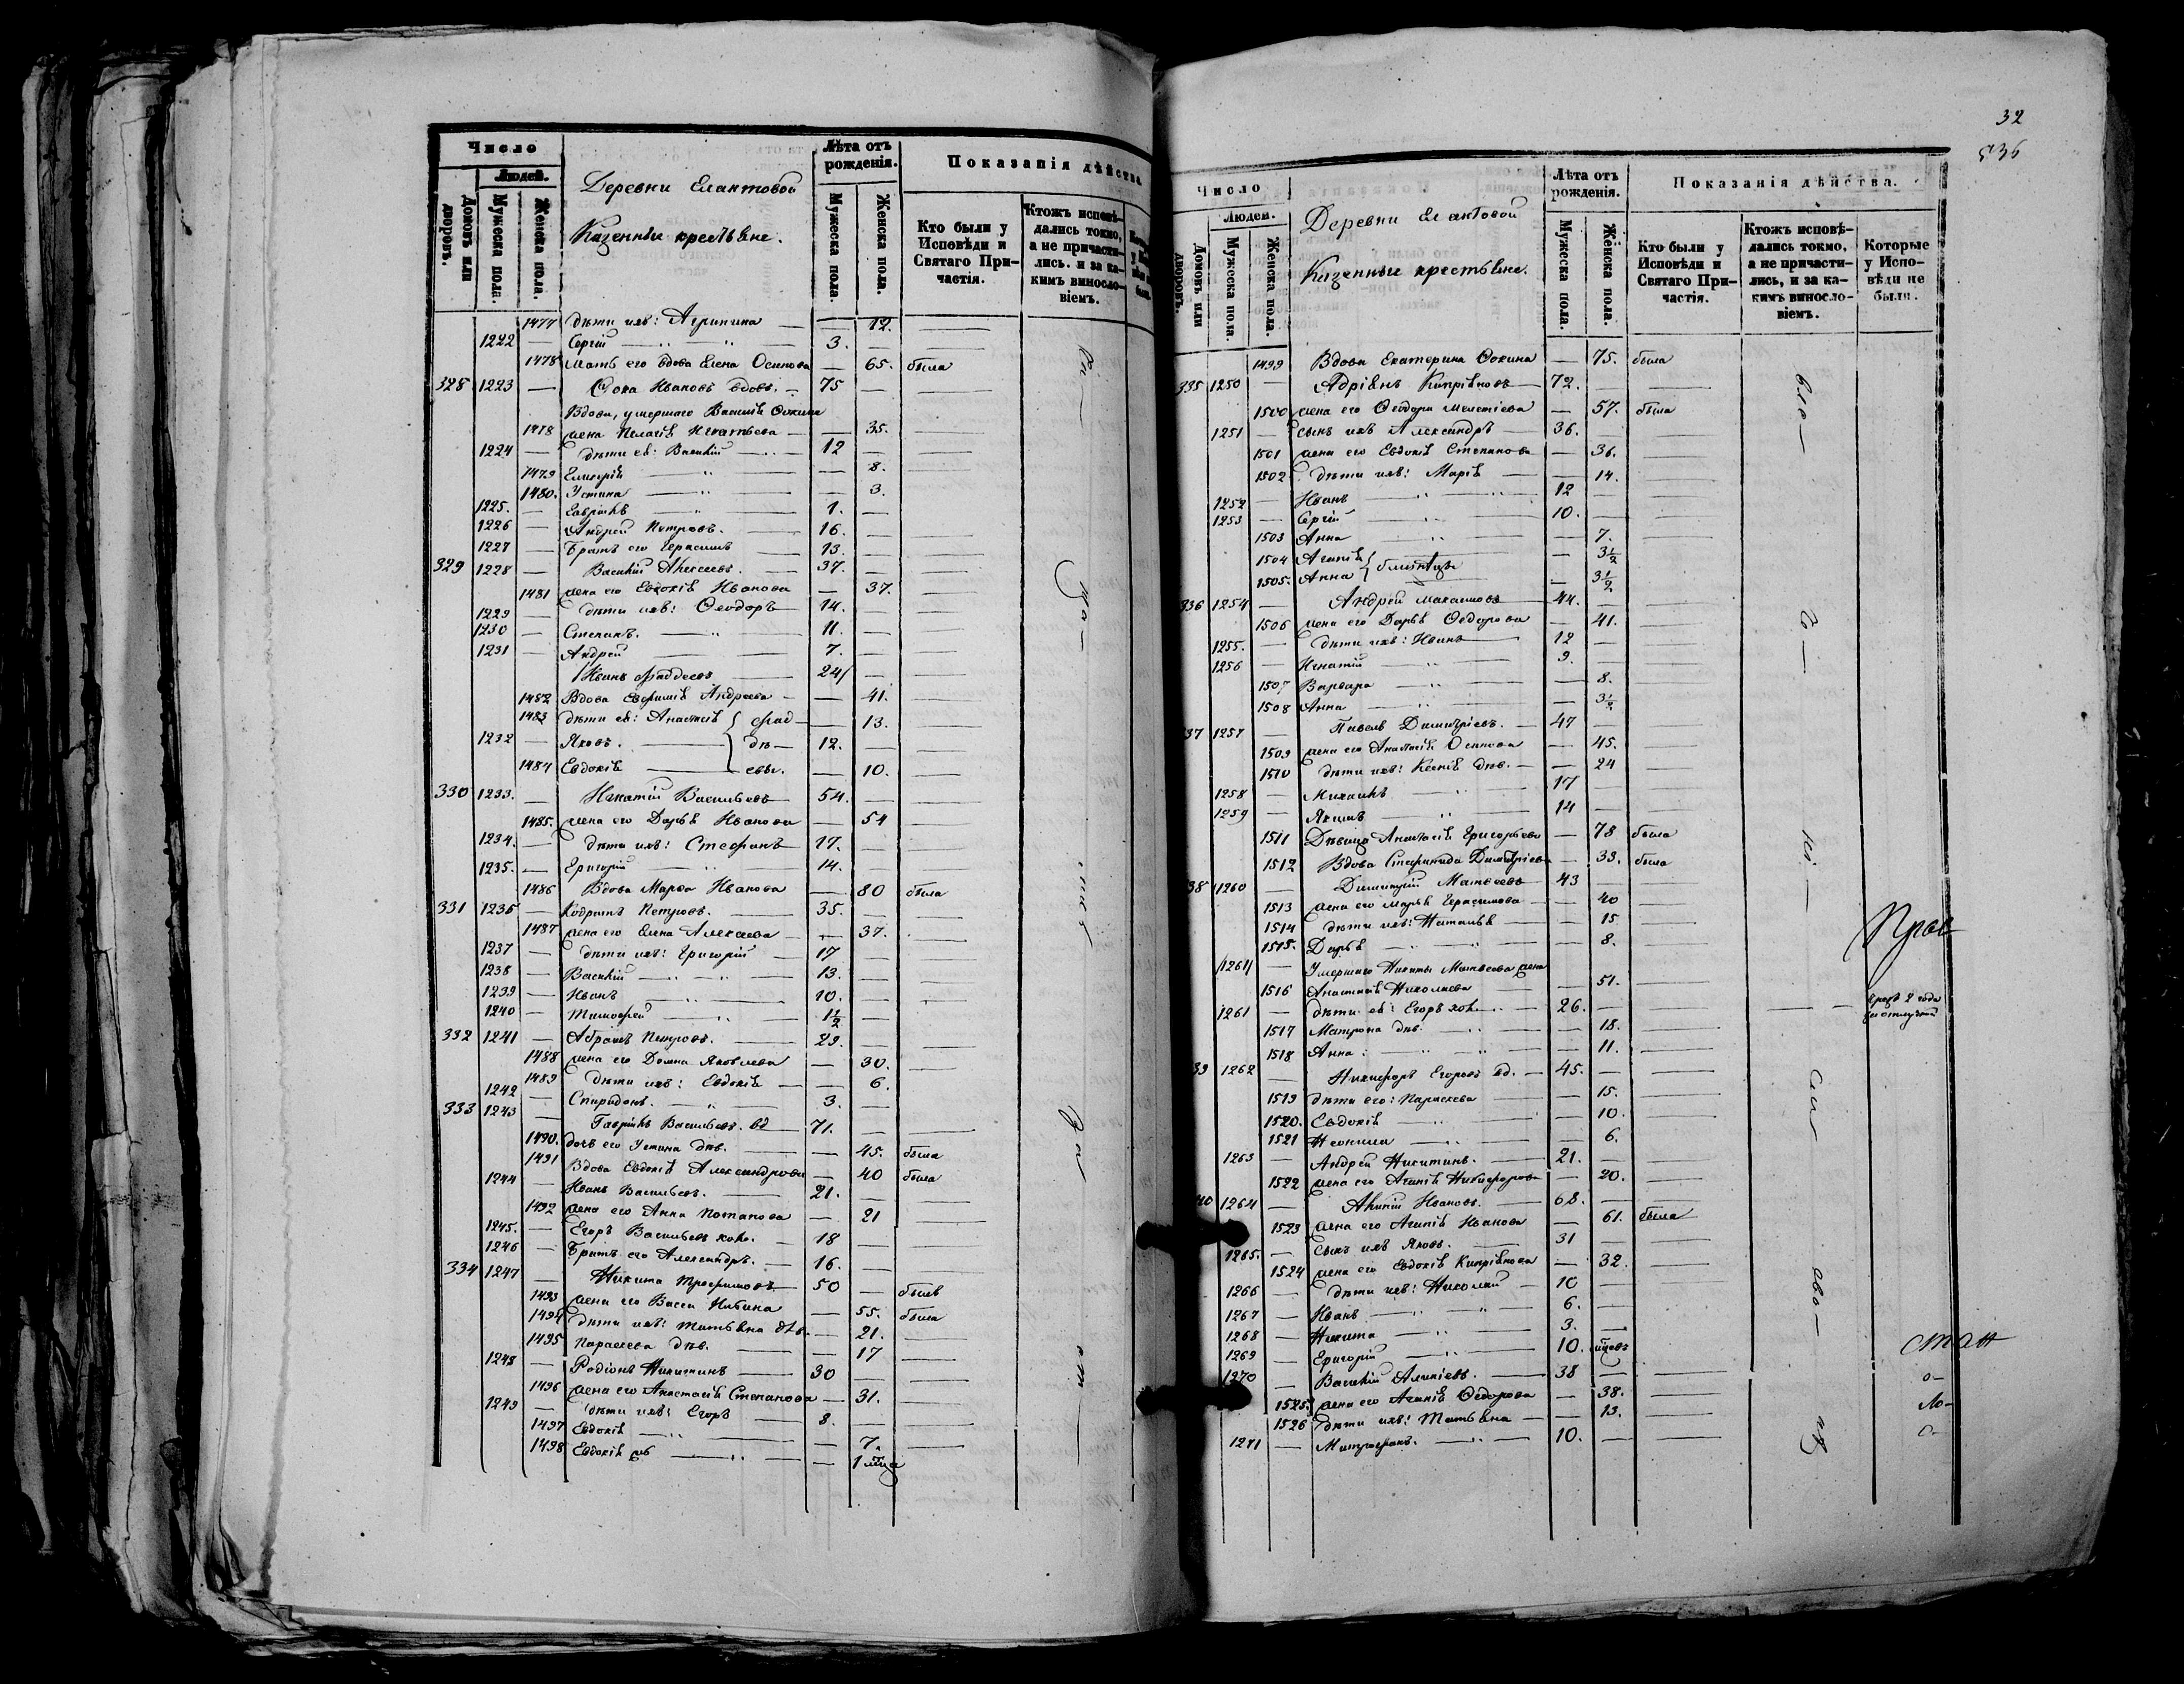 Число
Людей.
Домовъ или дворовъ.
Мужеска пола.
Женска пола.
Деревни Елантовой
Казенные крестьяне.
Лѣта отъ рожденія.
Мужеска пола.
Женска пола.
Показанія дѣйства
Кто были у Исповѣди и Святаго Причастія.
Ктожъ исповѣдались токмо, а не причастились. и за какимъ винословіемъ.
1477 дѣти ихъ: Агрипина — 12.
1222 — Сергій — 3. —
1478 Мать его вдова Елена Осипова — 65. была
328 1223 — Фока Ивановъ вдов. — 75 —
Вдова, умершаго Василія Фокина
1478 жена Пелагія Игнатьева — 35.
1224 — дѣти ея: Василій — 12 —
1479 Гликерія — 8.
1480. Устина — 3.
1225. — Гавріилъ — 1. —
1226 — Андрей Петровъ. — 16. —
1227 — Братъ его Герасимъ — 13. —
329 1228 — Василій Алексеевъ. — 37. —
1481 жена его Евдокія Иванова — 37.
1229 — дѣти ихъ: Ѳеодоръ — 14. —
1230 — Степанъ. — 11. —
1231 — Андрей — 7. —
Иванъ Фаддеевъ — 24 —
1482 Вдова Евфимія Андреева — 41.
1483 дѣти ея: Анастасія } фад— — 13.
1232 — Яковъ. } дѣ— 12. —
1484 Евдокія — евы. — 10.
330 1233. — Игнатій Васильевъ — 54. —
1485. жена его Дарья Иванова — 54
1234. — дѣти ихъ: Стефанъ — 17. —
1235. — Григорій — 14. —
1486 Вдова Марѳа Иванова — 80 была
331 1236 — Кодратъ Петровъ. — 35. —
1487 жена его Елена Алексеева — 37.
1237 — дѣти ихъ: Григорій — 17 —
1238 — Василій — 13. —
1239 — Иванъ — 10. —
1240 — Тимофей — 1½ —
332 1241 — Абрамъ Петровъ. — 29. —
1488 жена его Домна Яковлева — 30.
1489 дѣти ихъ: Евдокія — 6.
1242 — Спиридонъ. — 3. —
333 1243 — Гавріилъ Васильевъ. вд — 71. —
1490. дочь его Устина дѣв. — 45. была
1491 Вдова Евдокія Александрова — 40 была
1244 — Иванъ Васильевъ. — 21. —
1492 жена его Анна Потапова — 21
1245. — Егоръ Васильевъ хол. — 18 —
1246 — Братъ его Александръ. — 16. —
334 1247 — Никита Трофимовъ — 50 — былъ
1493 жена его Васса — 55. была
1494 дѣти ихъ: Татьяна дѣв. — 21.
1495 Параскева дѣв. — 17
1248 — Родіонъ Никитинъ — 30 —
1496 жена его Анастасія Степанова — 31.
1249 — дѣти ихъ: Егоръ — 8. —
1497 Евдокія — 7.
1498 Евдокія — 1
32
536
Число
Людей.
Домовъ или дворовъ.
Мужеска пола
Женска пола.
Деревни Елантовой
Казенные крестьяне.
Лѣта отъ рожденія.
Мужеска пола.
Женска пола.
Показанія дѣйства.
Кто были у Исповѣди и Святаго Причастія.
Ктожъ исповѣдались токмо, а не причастились, и за какимъ винословіемъ.
Которые у Исповѣди не были.
1499 Вдова Екатерина Фокина — 75. была
335 1250 — Адріянъ Кипріяновъ — 72. —
1500 жена его Ѳеодора Мелетіева — 57. была
1251 — сынъ ихъ Александръ — 36. —
1501 жена его Евдокія Степанова — 36.
1502 дѣти ихъ: Марія — 14.
1252 — Иванъ — 12 —
1253 — Сергій — 10. —
1503 Анна — 7.
1504 Агапія } близнецы — 3½
1505. Анна } — 3½
336 1254 — Андрей Максимовъ — 44. —
1506 жена его Дарья Ѳедорова — 41.
1255. — дѣти ихъ: Иванъ — 12 —
1256 — Игнатій — 9. —
1507 Варвара — 8.
1508 Анна — 3½
37 1257 — Павелъ Димитріевъ. — 47 —
1509 жена его Анастасія Осипова — 45.
1510 дѣти ихъ: Ксенія дѣв. — 24
1258 — Михаилъ — 17 —
1259 — Якимъ — 14 —
1511 Дѣвица Анастасія Григорьева — 78 была
1512 Вдова Степанида Димитріева — 33. была
38 1260 — Димитрій Матвеевъ — 43 —
1513 жена его Марья Герасимова — 40
1514 дѣти ихъ: Наталья — 15
1515. Дарья — 8.
1261 — Умершаго Никиты Матвеева жена
1516 Анастасія Николаева — 51.
1261 — дѣти ея: Егоръ хол. — 26. —
1517 Матрона дѣв. — 18.
1518 Анна: — 11.
39 1262 — Никифоръ Егоровъ вд. — 45. —
1519 дѣти его: Параскева — 15.
1520. Евдокія — 10.
1521 Неонила — 6.
1263 — Андрей Никитинъ. — 21. —
1522 жена его Агапія Никифорова — 20.
40 1264 — Акипій Ивановъ. — 68. —
1523 жена его Агапія Иванова — 61. была
1265. — Сынъ ихъ Яковъ. — 31 —
1524 жена его Евдокія Кипріянова — 32.
1266 — дѣти ихъ: Николай — 10 —
1267 — Иванъ — 6. —
1268 — Никита — 3. —
1269 — Григорій — 10.
1270 — Василій Алипіевъ. — 38 —
1525. жена его Агапія Ѳедорова — 38.
1526 дѣти ихъ: Татьяна — 13.
1271 — Митрофанъ. — 10. —